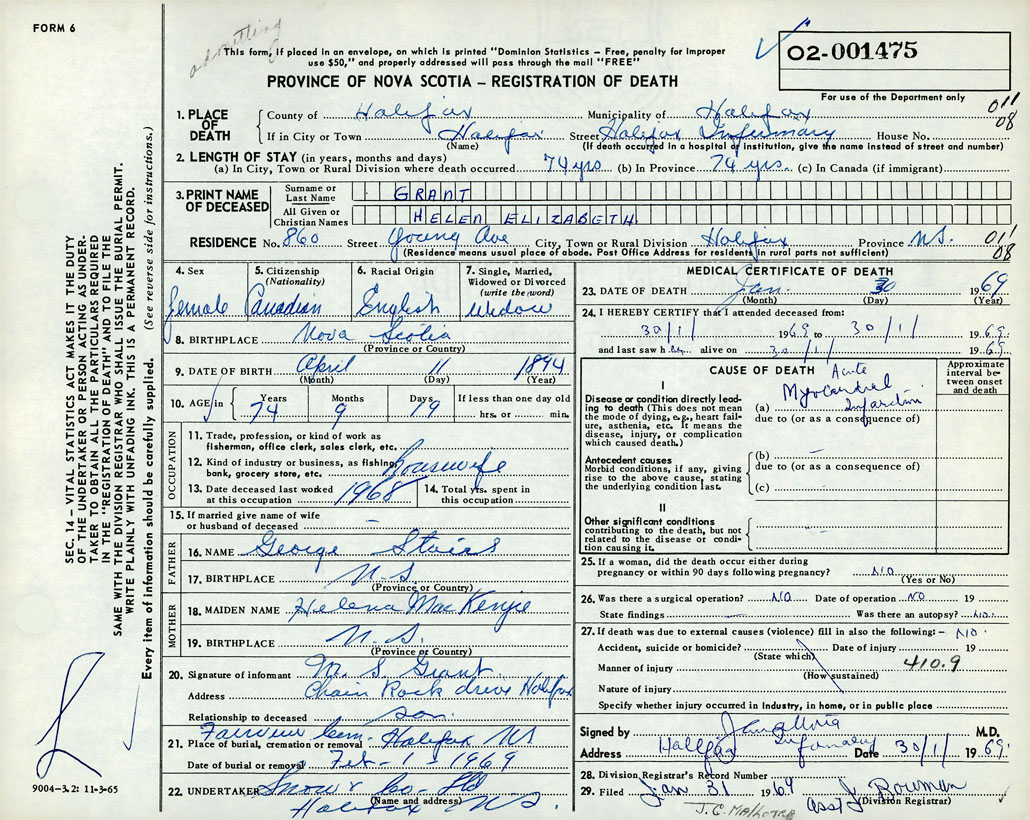 FORM 6
This form, if placed in an envelope, on which is printed "Dominion Statistics – Free, penalty for improper
use $50," and properly addressed will pass through the mail "FREE"
PROVINCE OF NOVA SCOTIA – REGISTRATION OF DEATH
02-001475
For use of the Department only
011
08
1. PLACE OF DEATH County of Halifax Municipality of Halifax
If in City or Town Halifax Street Halifax Infirmary House No.
(Name) (If death occurred in a hospital or institution, give the name instead of street and number)
2. LENGTH OF STAY (in years, months and days)
(a) In City, Town or Rural Division where death occurred 74 yrs (b) In Province 74 yrs. (c) In Canada (if immigrant)
3. PRINT NAME OF DECEASED Surname or Last Name GRANT
All Given or Christian Names HELEN ELIZABETH
RESIDENCE No. 860 Street Young Ave City, Town or Rural Division Halifax Province NS. 011
08
(Residence means usual place of abode. Post Office Address for residents in rural parts not sufficient)
4. Sex Female
5. Citizenship (Nationality) Canadian
6. Racial Origin English
7. Single, Married, Widowed or Divorced (write the word) Widow
8. BIRTHPLACE Nova Scotia
(Province or Country)
9. DATE OF BIRTH April 11 1894
(Month) (Day) (Year)
10. AGE in Years 74 Months 9 Days 19 If less than one day old
hrs. or min.
OCCUPATION
11. Trade, profession, or kind of work as
fisherman, office clerk, sales clerk, etc.
12. Kind of industry or business, as fishing,
bank, grocery store, etc. Housewife
13. Date deceased last worked
at this occupation 1968
14. Total yrs. spent in
this occupation
15. If married give name of wife
or husband of deceased –
FATHER
16. NAME George Stairs
17. BIRTHPLACE N.S.
(Province or Country)
MOTHER
18. MAIDEN NAME Helena MacKenzie
19. BIRTHPLACE N.S.
(Province or Country)
20. Signature of informant M. S. Grant
Address Chain Rock drive Halifax
Relationship to deceased son
21. Place of burial, cremation or removal Fairview Cem. Halifax NS
Date of burial or removal Feb - 1 - 1969
22. UNDERTAKER Snow & Co - Ltd
(Name and address)
Halifax NS.
MEDICAL CERTIFICATE OF DEATH
23. DATE OF DEATH Jan. 30 1969
(Month) (Day) (Year)
24. I HEREBY CERTIFY that I attended deceased from:
30/1/ 1969 to 30/1/ 1969.
and last saw h er alive on 30/1/ 1969.
CAUSE OF DEATH
Approximate interval between onset and death
I
Disease or condition directly leading
to death (This does not mean
the mode of dying, e.g., heart failure,
asthenia, etc. It means the
disease, injury, or complication
which caused death.)
(a) Acute Myocardial Infarction
due to (or as a consequence of)
Antecedent causes
Morbid conditions, if any, giving
rise to the above cause, stating
the underlying condition last.
(b) –
due to (or as a consequence of)
(c)
II
Other significant conditions
contributing to the death, but not
related to the disease or condition
causing it.
25. If a woman, did the death occur either during
pregnancy or within 90 days following pregnancy? NO
(Yes or No)
26. Was there a surgical operation? NO. Date of operation NO 19
State findings — Was there an autopsy? NO.
27. If death was due to external causes (violence) fill in also the following:– NO.
Accident, suicide or homicide? Date of injury 19
(State which)
Manner of injury 410.9
(How sustained)
Nature of injury
Specify whether injury occurred in industry, in home, or in public place
Signed by M.D.
Address Halifax Infirmary Date 30/1/ 1969.
28. Division Registrar's Record Number
29. Filed Jan 31 1969 J. Bowman
asst (Division Registrar)
J.C. Malhotra
SEC. 14 – VITAL STATISTICS ACT MAKES IT THE DUTY
OF THE UNDERTAKER OR PERSON ACTING AS UNDERTAKER
TO OBTAIN ALL THE PARTICULARS REQUIRED
IN THE "REGISTRATION OF DEATH" AND TO FILE THE
SAME WITH THE DIVISION REGISTRAR WHO SHALL ISSUE THE BURIAL PERMIT.
WRITE PLAINLY WITH UNFADING INK. THIS IS A PERMANENT RECORD.
Every item of information should be carefully supplied. (See reverse side for instructions.)
9004-3.2: 11-3-65